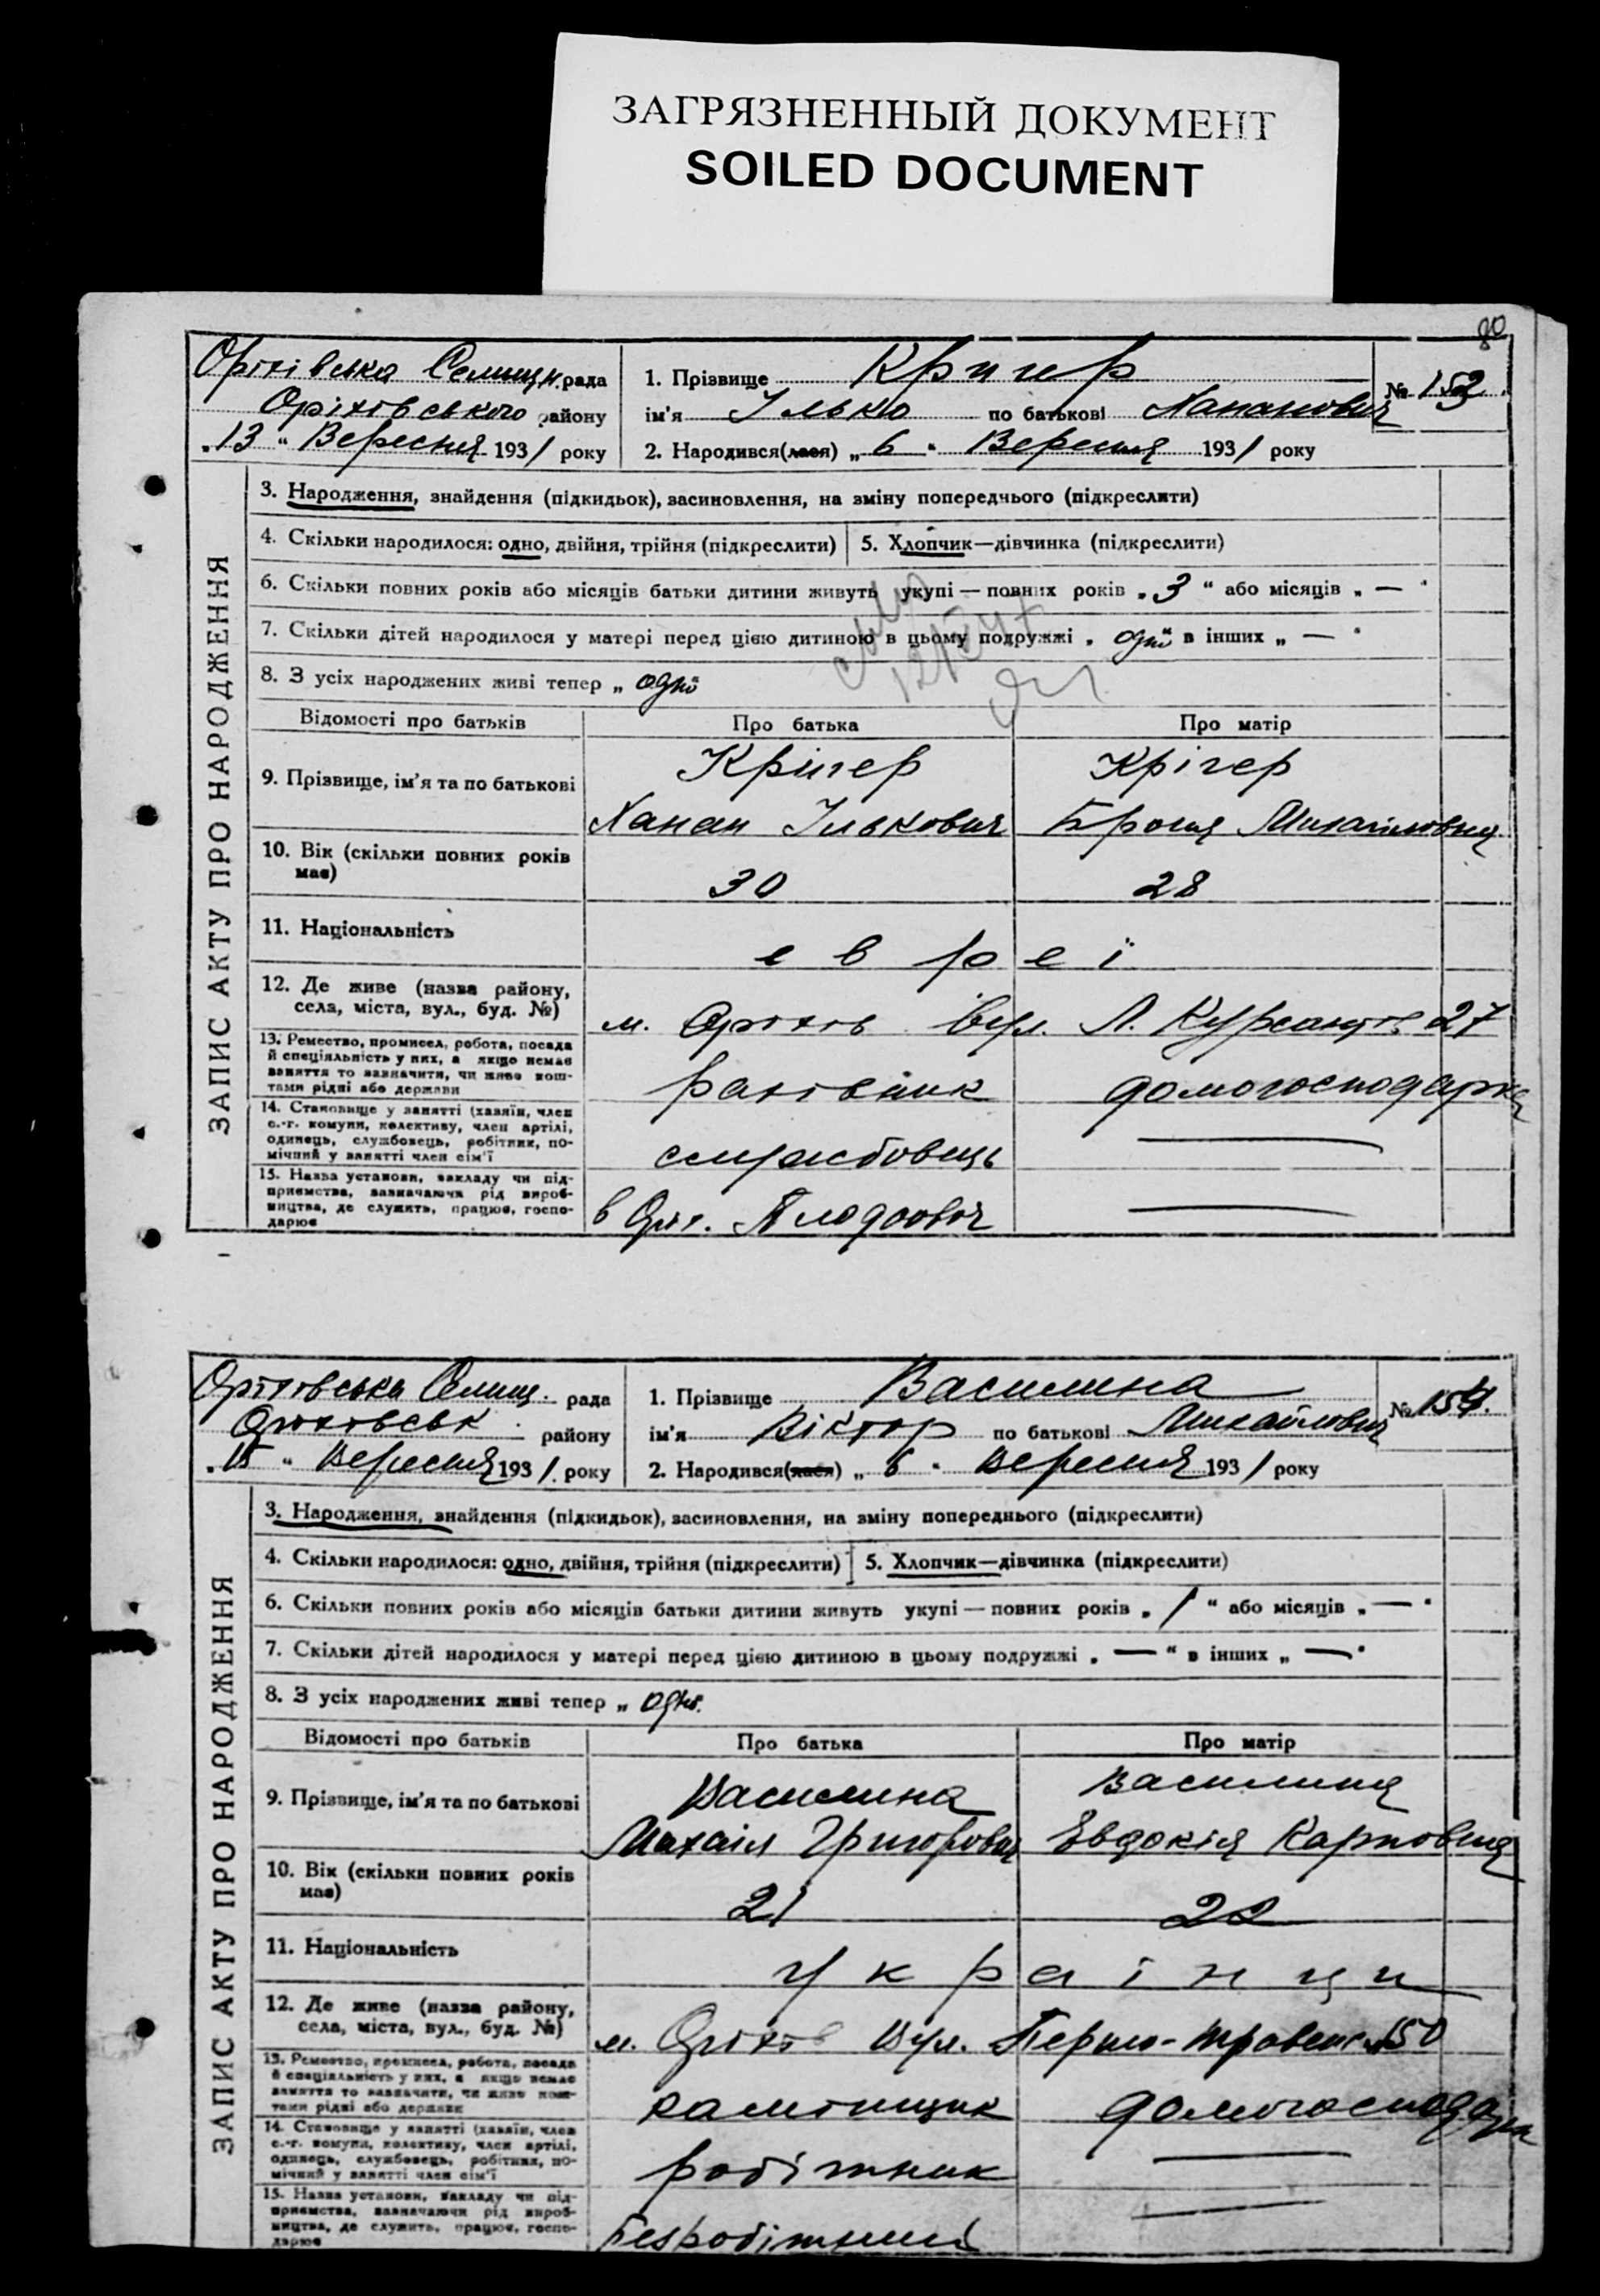 ЗАГРЯЗНЕННЫЙ ДОКУМЕНТ
SOILED DOCUMENT
80
Оріхівська Селищн. рада
Оріхівського району
„13“ Вересня 1931 року
1. Прізвище Кригер
№ 153
ім'я Ілько по батькові Хананович
2. Народився(лася) „6“ Вересня 1931 року
ЗАПИС АКТУ ПРО НАРОДЖЕННЯ
3. Народження, знайдення (підкидьок), засиновлення, на зміну попереднього (підкреслити)
4. Скільки народилося: одно, двійня, трійня (підкреслити)
5. Хлопчик—дівчинка (підкреслити)
6. Скільки повних років або місяців батьки дитини живуть укупі — повних років „3“ або місяців „—“
7. Скільки дітей народилося у матері перед цією дитиною в цьому подружжі „одно“ в інших „—“
8. З усіх народжених живі тепер „одно“
Відомості про батьків
Про батька
Про матір
9. Прізвище, ім'я та по батькові
Крігер
Ханан Ількович
Крігер
Броня Михайловна
10. Вік (скільки повних років має)
30
28
11. Національність
евреї
12. Де живе (назва району, села, міста, вул., буд. №)
м. Оріхів вул. Л. Курсантів 27
13. Ремество, промисел, робота, посада
й спеціяльність у них, а якщо немає
заняття то зазначити, чи живе кош-
тами рідні або держави
рахівник
домогосподарка
14. Становище у занятті (хазяїн, член
с.-г. комуни, колективу, член артілі,
одинець, службовець, робітник, по-
мічний у занятті член сім'ї
службовець
15. Назва установи, закладу чи під-
приємства, зазначаючи рід вироб-
ництва, де служить, працює, госпо-
дарює
в Оріх. Плодоовоч
Оріхівська Селищ. рада
Оріхівськ. району
Вересня 1931 року
1. Прізвище Василина
№ 154.
ім'я Віктор по батькові Михайлович
2. Народився(лася) „6“ Вересня 1931 року
ЗАПИС АКТУ ПРО НАРОДЖЕННЯ
3. Народження, знайдення (підкидьок), засиновлення, на зміну попереднього (підкреслити)
4. Скільки народилося: одно, двійня, трійня (підкреслити)
5. Хлопчик—дівчинка (підкреслити)
6. Скільки повних років або місяців батьки дитини живуть укупі — повних років „1“ або місяців „—“
7. Скільки дітей народилося у матері перед цією дитиною в цьому подружжі „—“ в інших „—“
8. З усіх народжених живі тепер „одно.
Відомості про батьків
Про батька
Про матір
9. Прізвище, ім'я та по батькові
Василина
Михаіл Григорович
Василина
Евдокія Карповна
10. Вік (скільки повних років має)
21
22
11. Національність
українци
12. Де живе (назва району, села, міста, вул., буд. №)
м. Оріхів Вул. Першо-травенс. 150
13. Ремество, промисел, робота, посада
й спеціяльність у них, а якщо немає
заняття то зазначити, чи живе кош-
тами рідні або держави
камінщик
домогосподарка
14. Становище у занятті (хазяїн, член
с.-г. комуни, колективу, член артілі,
одинець, службовець, робітник, по-
мічний у занятті член сім'ї
робітник
15. Назва установи, закладу чи під-
приємства, зазначаючи рід вироб-
ництва, де служить, працює, госпо-
дарює
безробітний